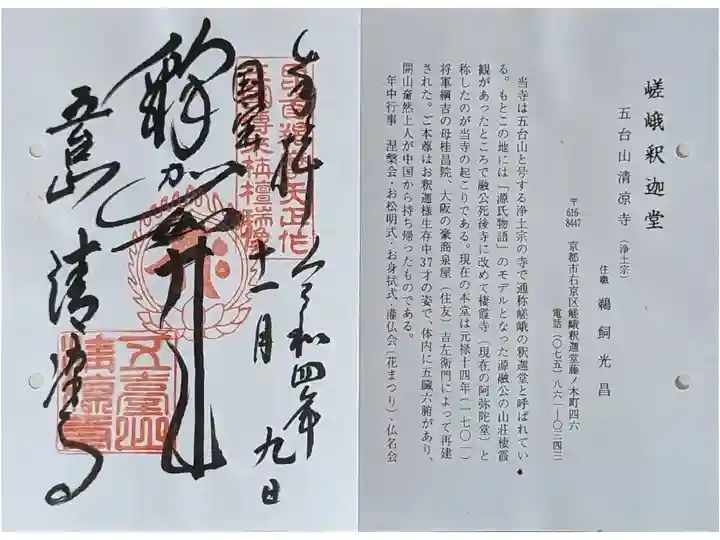 嵯峨釈迦堂
五台山清凉寺（浄土宗）
住職 鵜飼光昌
〒616-8447 京都市右京区嵯峨釈迦堂藤ノ木町四六
電話（〇七五）八六一ー〇三四三
当寺は五台山と号する浄土宗の寺で通称嵯峨の釈迦堂と呼ばれてい
る。もとこの地には「源氏物語」のモデルとなった源融公の山荘棲霞
観があったところで融公死後寺に改めて棲霞寺（現在の阿弥陀堂）と
称したのが当寺の起こりである。現在の本堂は元禄十四年（一七〇一）
将軍綱吉の母桂昌院、大阪の豪商泉屋（住友）吉左衛門によって再建
された。ご本尊はお釈迦様生存中37才の姿で、体内に五臓六腑があり、
開山奝然上人が中国から持ち帰ったものである。
年中行事 涅槃会・お松明式・お身拭式・灌仏会（花まつり）・仏名会
令和四年
十一月
九日
奉拝
国宝
釈迦
五台山 清凉寺